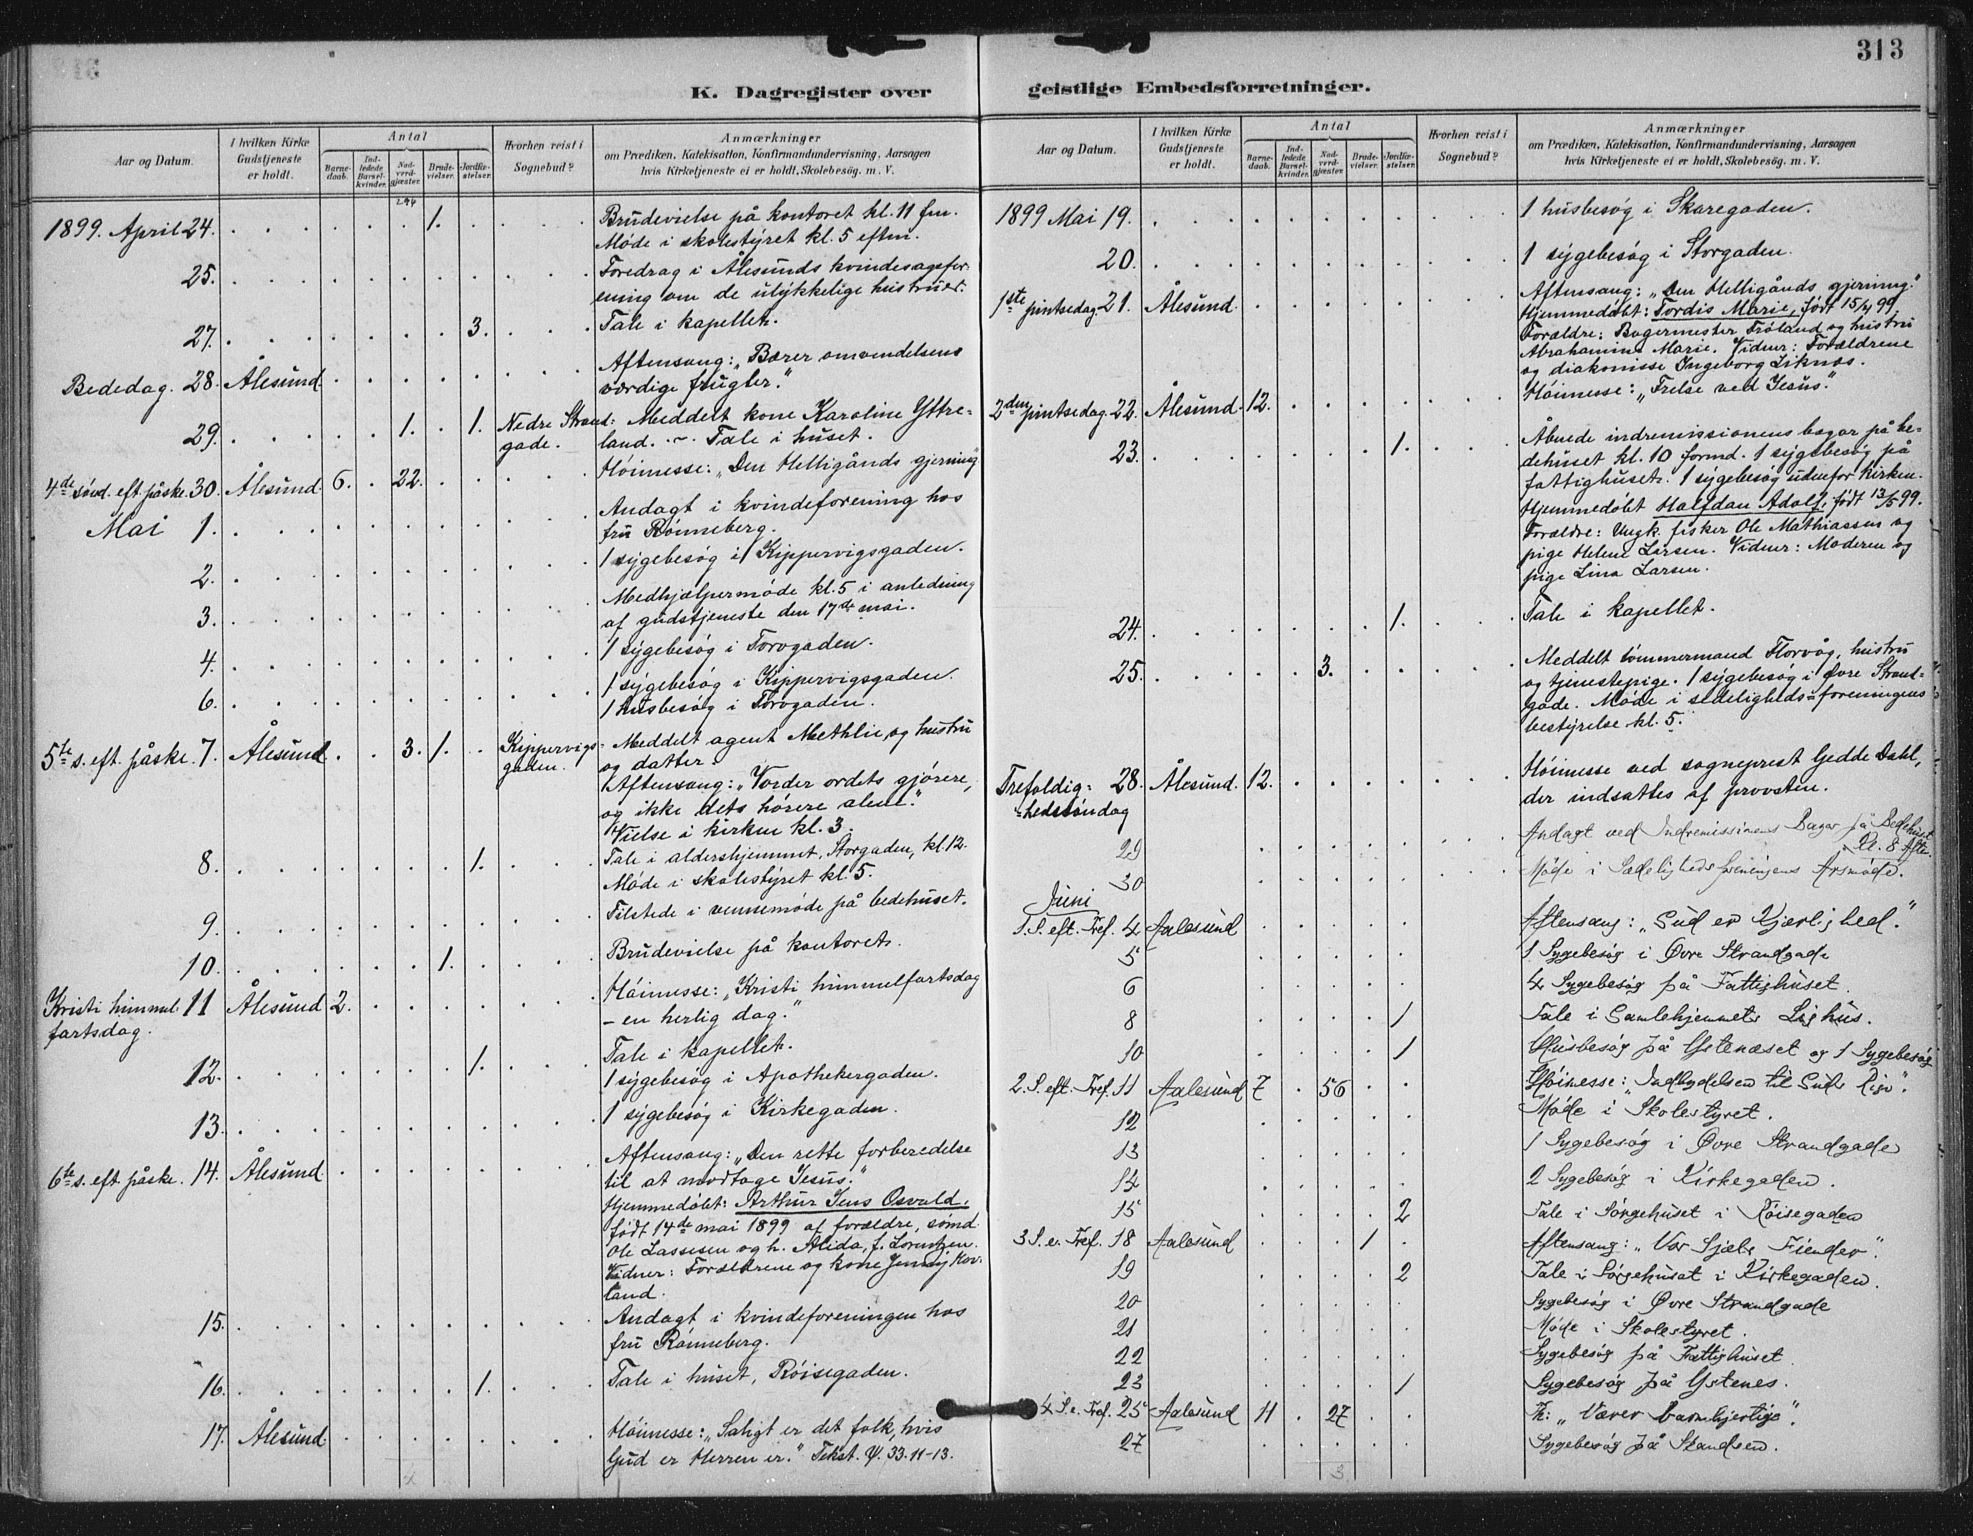 313
K. Dagregister over geistlige Embedsforretninger.
Aar og Datum.
I hvilken Kirke Gudstjeneste er holdt.
Antal
Barnedaab.
Indledede Barselkvinder.
Nadverdgjæster.
Brudevielser.
Jordfæstelser.
Hvorhen reist i Sognebud?
Anmærkninger
om Prædiken, Katekisation, Konfirmandundervisning, Aarsagen
hvis Kirketjeneste ei er holdt, Skolebesög. m. V.
1899. April 24. 1. Brudevielse på kontoret kl. 11 fm.
Møde i skolestyret kl. 5 eftm.
25. Foredrag i Ålesunds kvindesagsfor-
ening om de ulykkelige hustruer.
27. 3. Tale i kapellet.
Bededag. 28. Ålesund Aftensang: "Bærer omvendelsens
værdige frugter."
29. 1. 1. Nedre Strand- Meddelt kone Karoline Yttre-
gade. land. – Tale i huset.
4de sønd. eft. påske. 30. Ålesund. 6. 22. Høimesse: "Den Helligånds gjerning"
Mai 1. Andagt i kvindeforening hos
fru Rønneberg.
2. 1 sygebesøg i Kippervigsgaden.
3. Medhjælpermøde kl. 5 i anledning
af gudstjeneste den 17de mai.
4. 1 sygebesøg i Torvgaden.
6. 1 sygebesøg i Kippervigsgaden.
1 husbesøg i Torvgaden.
5te s. eft. påske. 7. Ålesund 3. 1. Kippervigs- Meddelt agent Methlie, og hustru
gaden. og datter.
Aftensang: "Vorder ordets gjørere,
og ikke dets hørere alene."
Vielse i kirken kl. 3.
8. 1. Tale i aldershjemmet, Storgaden, kl. 12.
Møde i skolestyret kl. 5.
9. Tilstede i vennemøde på bedehuset.
10. 1. Brudevielse på kontoret.
Kristi himmel- 11 Ålesund 2. Høimesse: "Kristi himmelfartsdag
fartsdag. – en herlig dag."
12. 1. Tale i kapellet.
1 sygebesøg i Apothekergaden.
13. 1 sygebesøg i Kirkegaden.
6te s. eft. påske. 14. Ålesund Aftensang: "Den rette forberedelse
til at modtage Jesus."
Hjemmedøbt: Arthur Jens Osvald,
født 14de mai 1899 af forældre, sømd.
Ole Lassesen og h. Alida, f. Lorentzen.
Vidner: Forældrene og kone Jenny Kov-
land.
15. Andagt i kvindeforeningen hos
fru Rønneberg.
16. 1. Tale i huset, Røisegaden.
17. Ålesund Høimesse: "Saligt er det folk, hvis
Gud er Herren er." Tekst. Ψ. 33. 11–13.
Aar og Datum.
I hvilken Kirke Gudstjeneste er holdt.
Antal
Barnedaab.
Indledede Barselkvinder.
Nadverdgjæster.
Brudevielser.
Jordfæstelser.
Hvorhen reist i Sognebud?
Anmærkninger
om Prædiken, Katekisation, Konfirmandundervisning, Aarsagen
hvis Kirketjeneste ei er holdt, Skolebesög. m. V.
1899 Mai 19. 1 husbesøg i Skaregaden.
20. 1 sygebesøg i Storgaden.
1ste pintsedag. 21. Ålesund. Aftensang: "Den Helligånds gjerning."
Hjemmedøbt: Tordis Marie, født 15/4 99.
Forældre: Bagermester Frøland og hustru
Abrahamine Marie. Vidner: Forældrene
og diakonisse Ingeborg Liknæs.
2den pintsedag. 22. Ålesund. 12. Høimesse: "Frelse ved Jesus."
23. 1. Åbnede indremissionens bazar på be-
dehuset kl. 10 formd. 1 sygebesøg på
fattighuset. 1 sygebesøg udenfor kirken.
Hjemmedøbt Halfdan Adolf, født 13/5 99.
Forældre: Ungk. fisker Ole Mathiassen og
pige Helene Larsen. Vidner: Moderen og
pige Lina Larsen.
24. 1. Tale i kapellet.
25. 3. Meddelt tømmermand Florvåg, hustru
og tjenestepige. 1 sygebesøg i Øvre Strand-
gade. Møde i sedeligheds-foreningens
bestyrelse kl. 5.
Trefoldig- 28. Ålesund. 12. Høimesse ved sogneprest Gedde Dahl,
hedssøndag der indsattes af provsten.
29 Andagt ved Indremissionens Bazar på Bedehuset
Kl. 8 Aften.
30 Møde i Sædelighedsforeningens Årsmøde.
Juni
1. S. eft. Tref. 4 Aalesund Aftensang: "Gud er Kjærlighed."
5 1 Sygebesøg i Øvre Strandgade
6 4 Sygebesøg på Fattighuset.
8 1 Tale i Gamlehjemmets Lighus.
10 1 Husbesøg på Ystenæset og 1 Sygebesøg
2. S. eft. Tref. 11 Aalesund 7 56 Høimesse: "Indbydelsen til Guds Rige".
12 Møde i Skolestyret.
13 1 Sygebesøg i Øvre Strandgade
14 2 Sygebesøg i Kirkegaden.
15 2 Tale i Sørgehuset i Røisegaden
3 S. e. Tref. 18 Aalesund 1 Aftensang: "Vor Sjæls Fiender".
19 2 Tale i Sørgehuset i Kirkegaden.
20 Sygebesøg i Øvre Strandgade
21 Møde i Skolestyret.
22 Sygebesøg på Fattighuset.
23 1 Sygebesøg på Ystenes.
4 S. e. Tref. 25 Aalesund 11 27 H: "Værer barmhjertige".
27 Sygebesøg på Skandsen.